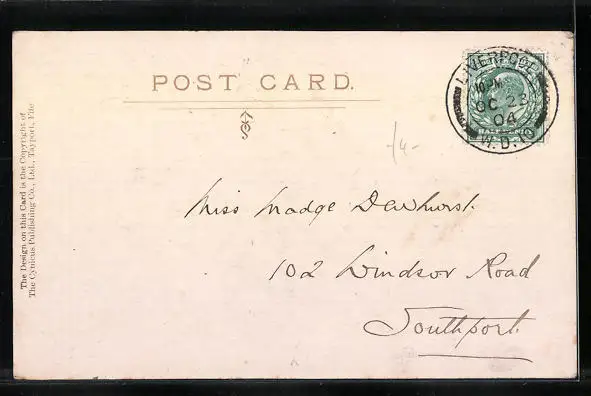 POST CARD.
LIVERPOOL
OC 23
04
W.D.O
The Design on this Card is the Copyright of
The Cynicus Publishing Co., Ltd., Tayport, Fife
Miss Madge Dewhurst.
102 Windsor Road
Southport.